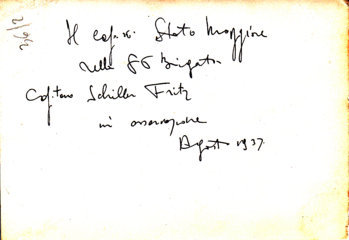 Il capo di Stato Maggiore
della 86 Brigata
Capitano Schiller Fritz
in osservazione
Agosto 1937